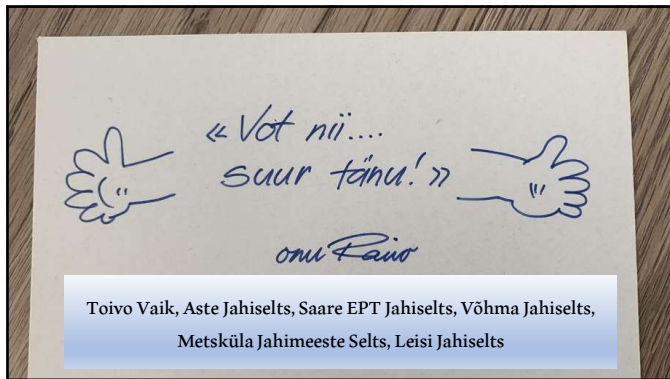 «Vot nii....
suur tänu!»
onu Raivo
Toivo Vaik, Aste Jahiselts, Saare EPT Jahiselts, Võhma Jahiselts,
Metsküla Jahimeeste Selts, Leisi Jahiselts